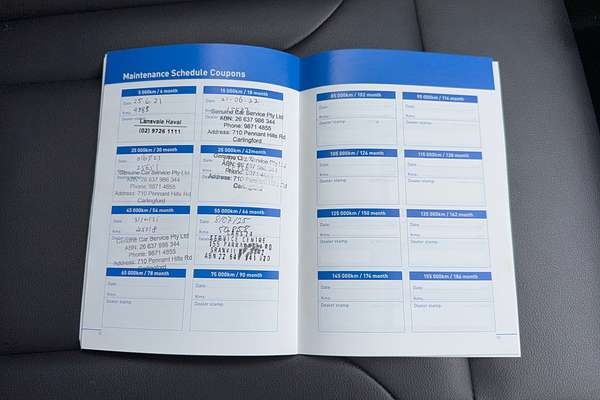 Maintenance Schedule Coupons
5 000km / 6 month
Date 25.6.21
Kms
Lansvale Haval
(02) 9726 1111
15 000km / 18 month
Date 21-06-22
Kms
Genuine Car Service Pty Ltd
ABN: 26 637 986 344
Phone: 9871 4855
Address: 710 Pennant Hills Rd
Carlingford
25 000km / 30 month
Date
Kms
Genuine Car Service Pty Ltd
ABN: 26 637 986 344
Phone: 9871 4855
Address: 710 Pennant Hills Rd
Carlingford
35 000km / 42month
Date
Address: 710 Pennant Hills Rd
Carlingford
45 000km / 54 month
Date
Kms
Genuine Car Service Pty Ltd
ABN: 26 637 986 344
Phone: 9871 4855
Address: 710 Pennant Hills Rd
55 000km / 66 month
Date
Kms
SERVICE CENTRE
65 000km / 78 month
Date
Kms
Dealer stamp
75 000km / 90 month
Date
Kms
Dealer stamp
85 000km / 102 month
Date
Kms
Dealer stamp
95 000km / 114 month
Date
Kms
Dealer stamp
105 000km / 126 month
Date
Kms
Dealer stamp
115 000km / 138 month
Date
Kms
Dealer stamp
125 000km / 150 month
Date
Kms
Dealer stamp
135 000km / 162 month
Date
Kms
Dealer stamp
145 000km / 174 month
Date
Kms
Dealer stamp
155 000km / 186 month
Date
Kms
Dealer stamp